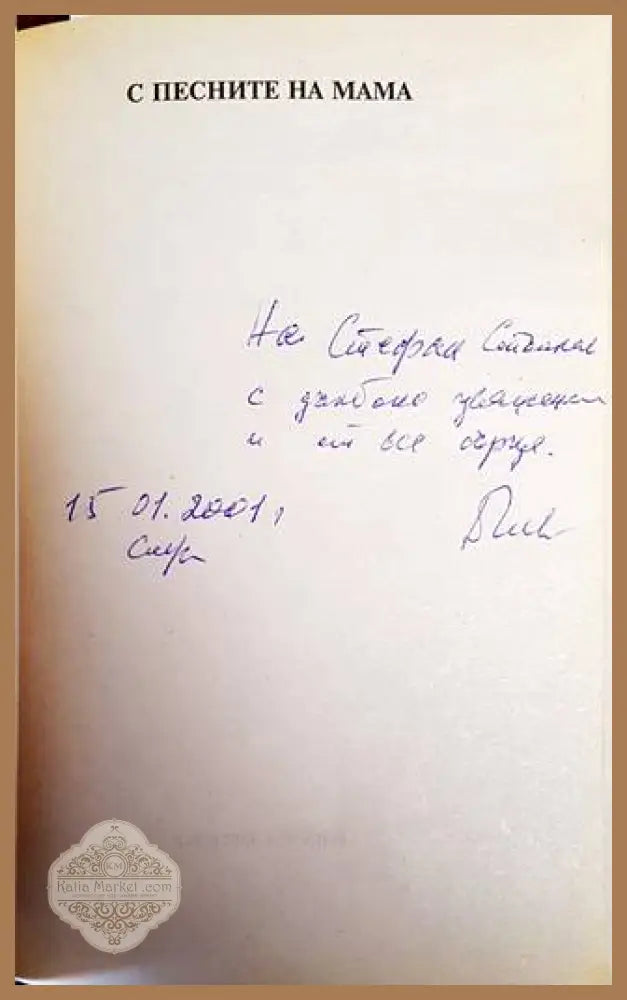 С ПЕСНИТЕ НА МАМА
На Стефан
с дълбоко уважение
и от все сърце.
15 01.2001,
KM
Kalia Market .com